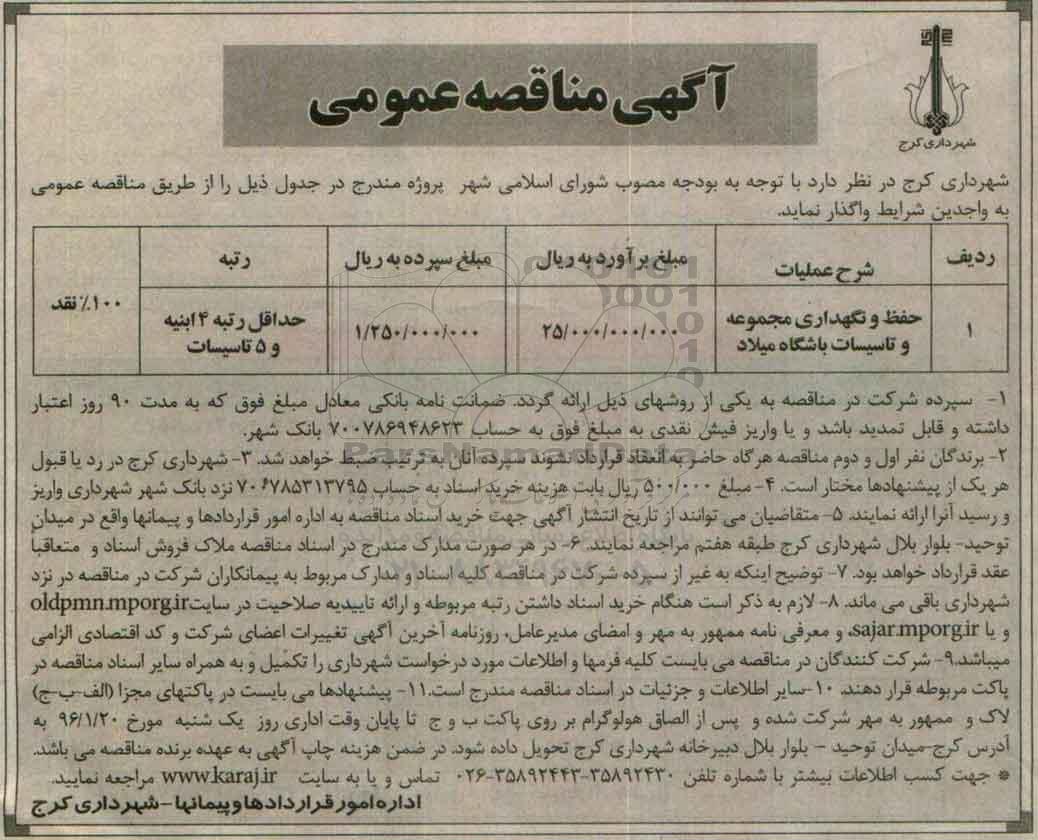 شهرداری کرج
آگهی مناقصه عمومی
شهرداری کرج در نظر دارد با توجه به بودجه مصوب شورای اسلامی شهر پروژه مندرج در جدول ذیل را از طریق مناقصه عمومی
به واجدین شرایط واگذار نماید.
ردیف شرح عملیات مبلغ برآورد به ریال مبلغ سپرده به ریال رتبه ۱۰۰٪ نقد
۱ حفظ و نگهداری مجموعه و تاسیسات باشگاه میلاد ۲۵/۰۰۰/۰۰۰/۰۰۰ ۱/۲۵۰/۰۰۰/۰۰۰ حداقل رتبه ۴ ابنیه و ۵ تاسیسات
۱- سپرده شرکت در مناقصه به یکی از روشهای ذیل ارائه گردد. ضمانت نامه بانکی معادل مبلغ فوق که به مدت ۹۰ روز اعتبار
داشته و قابل تمدید باشد و یا واریز فیش نقدی به مبلغ فوق به حساب ۷۰۰۷۸۶۹۴۸۶۲۳ بانک شهر.
۲- برندگان نفر اول و دوم مناقصه هرگاه حاضر به انعقاد قرارداد نشوند سپرده آنان به ترتیب ضبط خواهد شد. ۳- شهرداری کرج در رد یا قبول
هر یک از پیشنهادها مختار است. ۴- مبلغ ۵۰۰/۰۰۰ ریال بابت هزینه خرید اسناد به حساب ۷۰۰۶۷۸۵۳۱۳۷۹۵ نزد بانک شهر شهرداری واریز
و رسید آنرا ارائه نمایند. ۵- متقاضیان می توانند از تاریخ انتشار آگهی جهت خرید اسناد مناقصه به اداره امور قراردادها و پیمانها واقع در میدان
توحید- بلوار بلال شهرداری کرج طبقه هفتم مراجعه نمایند. ۶- در هر صورت مدارک مندرج در اسناد مناقصه ملاک فروش اسناد و متعاقبا
عقد قرارداد خواهد بود. ۷- توضیح اینکه به غیر از سپرده شرکت در مناقصه کلیه اسناد و مدارک مربوط به پیمانکاران شرکت در مناقصه در نزد
شهرداری باقی می ماند. ۸- لازم به ذکر است هنگام خرید اسناد داشتن رتبه مربوطه و ارائه تاییدیه صلاحیت در سایت oldpmn.mporg.ir
و یا sajar.mporg.ir، و معرفی نامه ممهور به مهر و امضای مدیرعامل، روزنامه آخرین آگهی تغییرات اعضای شرکت و کد اقتصادی الزامی
میباشد.۹- شرکت کنندگان در مناقصه می بایست کلیه فرمها و اطلاعات مورد درخواست شهرداری را تکمیل و به همراه سایر اسناد مناقصه در
پاکت مربوطه قرار دهند. ۱۰-سایر اطلاعات و جزئیات در اسناد مناقصه مندرج است.۱۱- پیشنهادها می بایست در پاکتهای مجزا (الف-ب-ج)
لاک و ممهور به مهر شرکت شده و پس از الصاق هولوگرام بر روی پاکت ب و ج تا پایان وقت اداری روز یک شنبه مورخ ۹۶/۱/۲۰ به
آدرس کرج-میدان توحید - بلوار بلال دبیرخانه شهرداری کرج تحویل داده شود. در ضمن هزینه چاپ آگهی به عهده برنده مناقصه می باشد.
* جهت کسب اطلاعات بیشتر با شماره تلفن ۳۵۸۹۲۴۳۰-۳۵۸۹۲۴۴۳-۰۲۶ تماس و یا به سایت www.karaj.ir مراجعه نمایید.
اداره امور قراردادها و پیمانها - شهرداری کرج
ParsNamadData